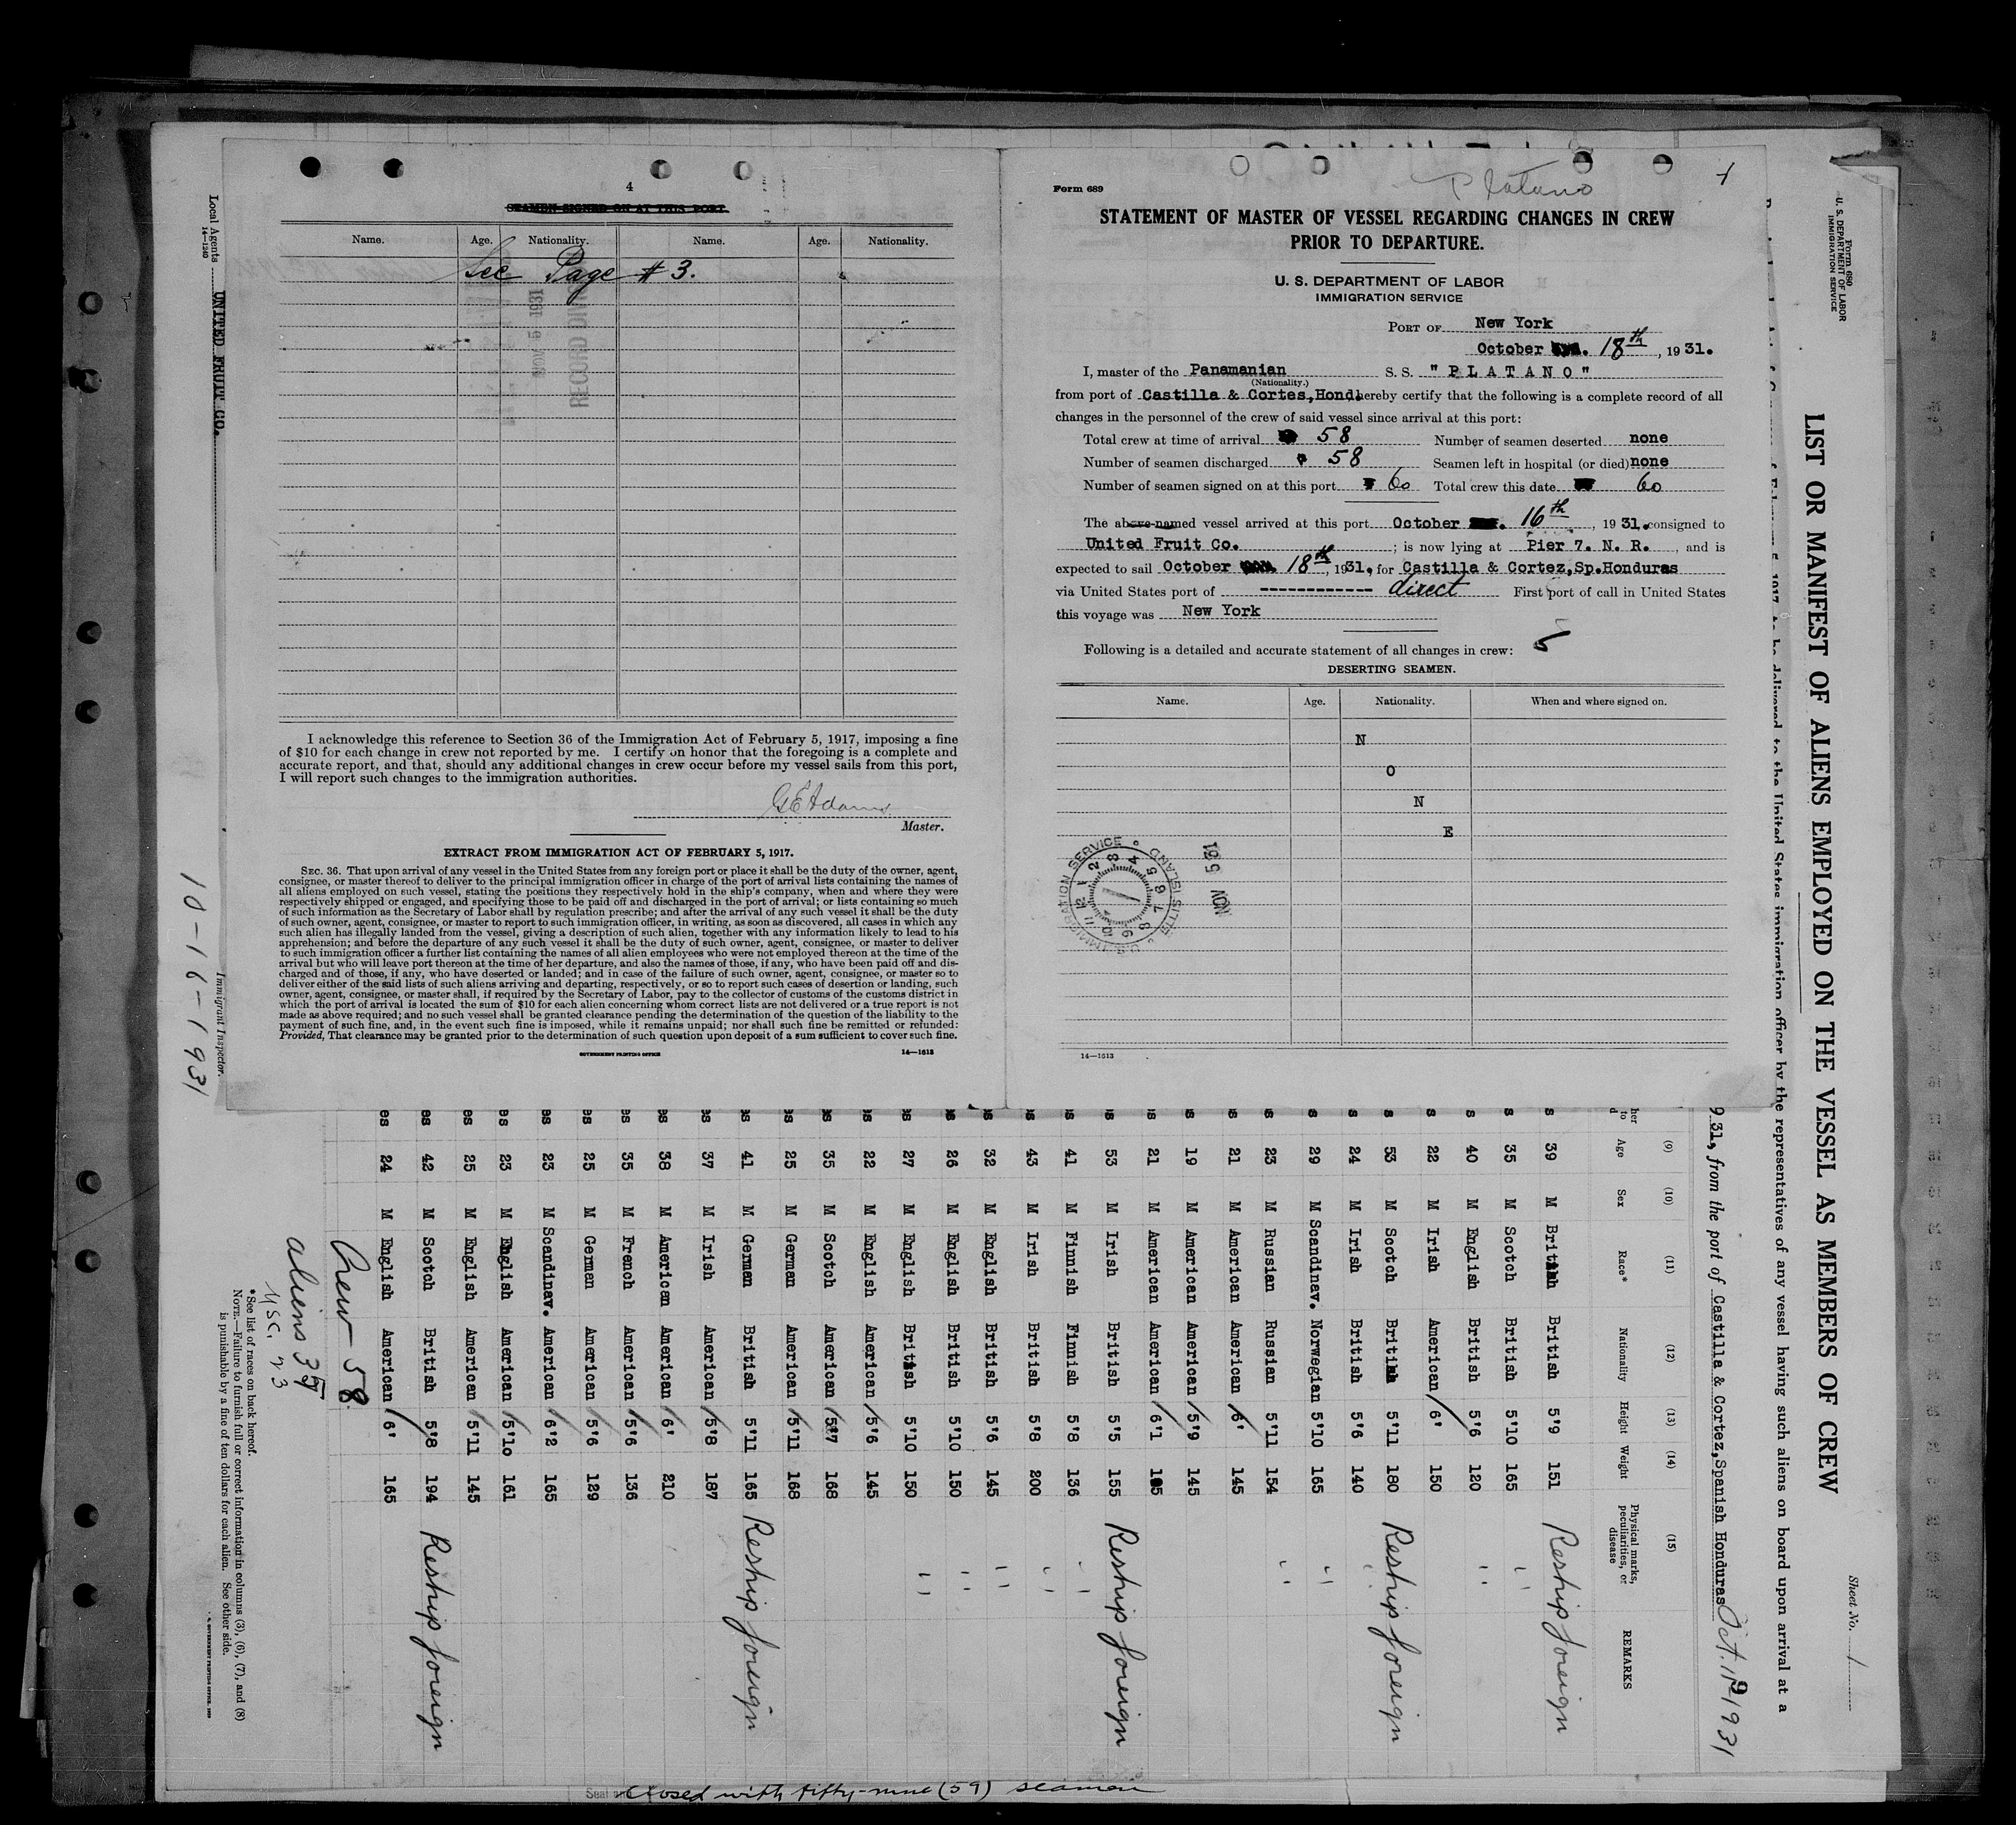 4
SEAMEN SIGNED ON AT THIS PORT
Name. Age. Nationality. Name. Age. Nationality.
See Page # 3.
NOV 5 1931
RECORD DIV
I acknowledge this reference to Section 36 of the Immigration Act of February 5, 1917, imposing a fine
of $10 for each change in crew not reported by me. I certify on honor that the foregoing is a complete and
accurate report, and that, should any additional changes in crew occur before my vessel sails from this port,
I will report such changes to the immigration authorities.
G E Adams
Master.
EXTRACT FROM IMMIGRATION ACT OF FEBRUARY 5, 1917.
SEC. 36. That upon arrival of any vessel in the United States from any foreign port or place it shall be the duty of the owner, agent,
consignee, or master thereof to deliver to the principal immigration officer in charge of the port of arrival lists containing the names of
all aliens employed on such vessel, stating the positions they respectively hold in the ship's company, when and where they were
respectively shipped or engaged, and specifying those to be paid off and discharged in the port of arrival; or lists containing so much
of such information as the Secretary of Labor shall by regulation prescribe; and after the arrival of any such vessel it shall be the duty
of such owner, agent, consignee, or master to report to such immigration officer, in writing, as soon as discovered, all cases in which any
such alien has illegally landed from the vessel, giving a description of such alien, together with any information likely to lead to his
apprehension; and before the departure of any such vessel it shall be the duty of such owner, agent, consignee, or master to deliver
to such immigration officer a further list containing the names of all alien employees who were not employed thereon at the time of the
arrival but who will leave port thereon at the time of her departure, and also the names of those, if any, who have been paid off and dis-
charged and of those, if any, who have deserted or landed; and in case of the failure of such owner, agent, consignee, or master so to
deliver either of the said lists of such aliens arriving and departing, respectively, or so to report such cases of desertion or landing, such
owner, agent, consignee, or master shall, if required by the Secretary of Labor, pay to the collector of customs of the customs district in
which the port of arrival is located the sum of $10 for each alien concerning whom correct lists are not delivered or a true report is not
made as above required; and no such vessel shall be granted clearance pending the determination of the question of the liability to the
payment of such fine, and, in the event such fine is imposed, while it remains unpaid; nor shall such fine be remitted or refunded:
Provided, That clearance may be granted prior to the determination of such question upon deposit of a sum sufficient to cover such fine.
GOVERNMENT PRINTING OFFICE 14—1613
Platano
Form 689
STATEMENT OF MASTER OF VESSEL REGARDING CHANGES IN CREW
PRIOR TO DEPARTURE.
U. S. DEPARTMENT OF LABOR
IMMIGRATION SERVICE
PORT OF New York
October 18th, 1931.
I, master of the Panamanian S. S. "PLATANO"
(Nationality.)
from port of Castilla & Cortes,Hond. hereby certify that the following is a complete record of all
changes in the personnel of the crew of said vessel since arrival at this port:
Total crew at time of arrival 58 Number of seamen deserted none
Number of seamen discharged 58 Seamen left in hospital (or died) none
Number of seamen signed on at this port 60 Total crew this date 60
The above-named vessel arrived at this port October 16th, 1931. consigned to
United Fruit Co. ; is now lying at Pier 7. N. R. , and is
expected to sail October 18th, 1931, for Castilla & Cortez,Sp.Honduras
via United States port of ------------ direct First port of call in United States
this voyage was New York
Following is a detailed and accurate statement of all changes in crew:
DESERTING SEAMEN.
Name. Age. Nationality. When and where signed on.
N
O
N
E
14—1613
Form 680
U. S. DEPARTMENT OF LABOR
IMMIGRATION SERVICE
Sheet No. 1
LIST OR MANIFEST OF ALIENS EMPLOYED ON THE VESSEL AS MEMBERS OF CREW
to be delivered to the United States immigration officer by the representatives of any vessel having such aliens on board upon arrival at a
931, from the port of Castilla & Cortez,Spanish Honduras Oct. 1931
(9) (10) (11) (12) (13) (14) (15)
Age Sex Race* Nationality Height Weight Physical marks, peculiarities, or disease REMARKS
s 39 M British British 5'9 151 Reship foreign
s 35 M Scotch British 5'10 165
s 40 M English British 5'6 120
s 22 M Irish American 6' 150
s 53 M Scotch British 5'11 180 Reship foreign
s 24 M Irish British 5'6 140
s 29 M Scandinav. Norwegian 5'10 165
s 23 M Russian Russian 5'11 154
s 21 M American American 6' 145
s 19 M American American 5'9 145
s 21 M American American 6'1
s 53 M Irish British 5'5 155 Reship foreign
s 41 M Finnish Finnish 5'8 136
s 43 M Irish British 5'8 200
s 32 M English British 5'6 145
s 26 M English British 5'10 150
s 27 M English British 5'10 150
s 22 M English American 5'6 145
es 35 M Scotch American 5'7 168
es 25 M German American 5'11 168
es 41 M German British 5'11 165 Reship foreign
es 37 M Irish American 5'8 187
es 38 M American American 6' 210
es 35 M French American 5'6 136
es 25 M German American 5'6 129
es 23 M Scandinav. American 6'2 165
es 23 M English American 5'10 161
es 25 M English American 5'11 145
es 42 M Scotch British 5'8 194 Reship foreign
es 24 M English American 6' 165
Crew 58
aliens 35
USC, 23
*See list of races on back hereof.
NOTE.—Failure to furnish full or correct information in columns (3), (6), (7), and (8)
is punishable by a fine of ten dollars for each alien. See other side.
Local Agents UNITED FRUIT CO.
14—1240
Immigrant Inspector.
10-16-1931
closed with fifty-nine (59) seamen